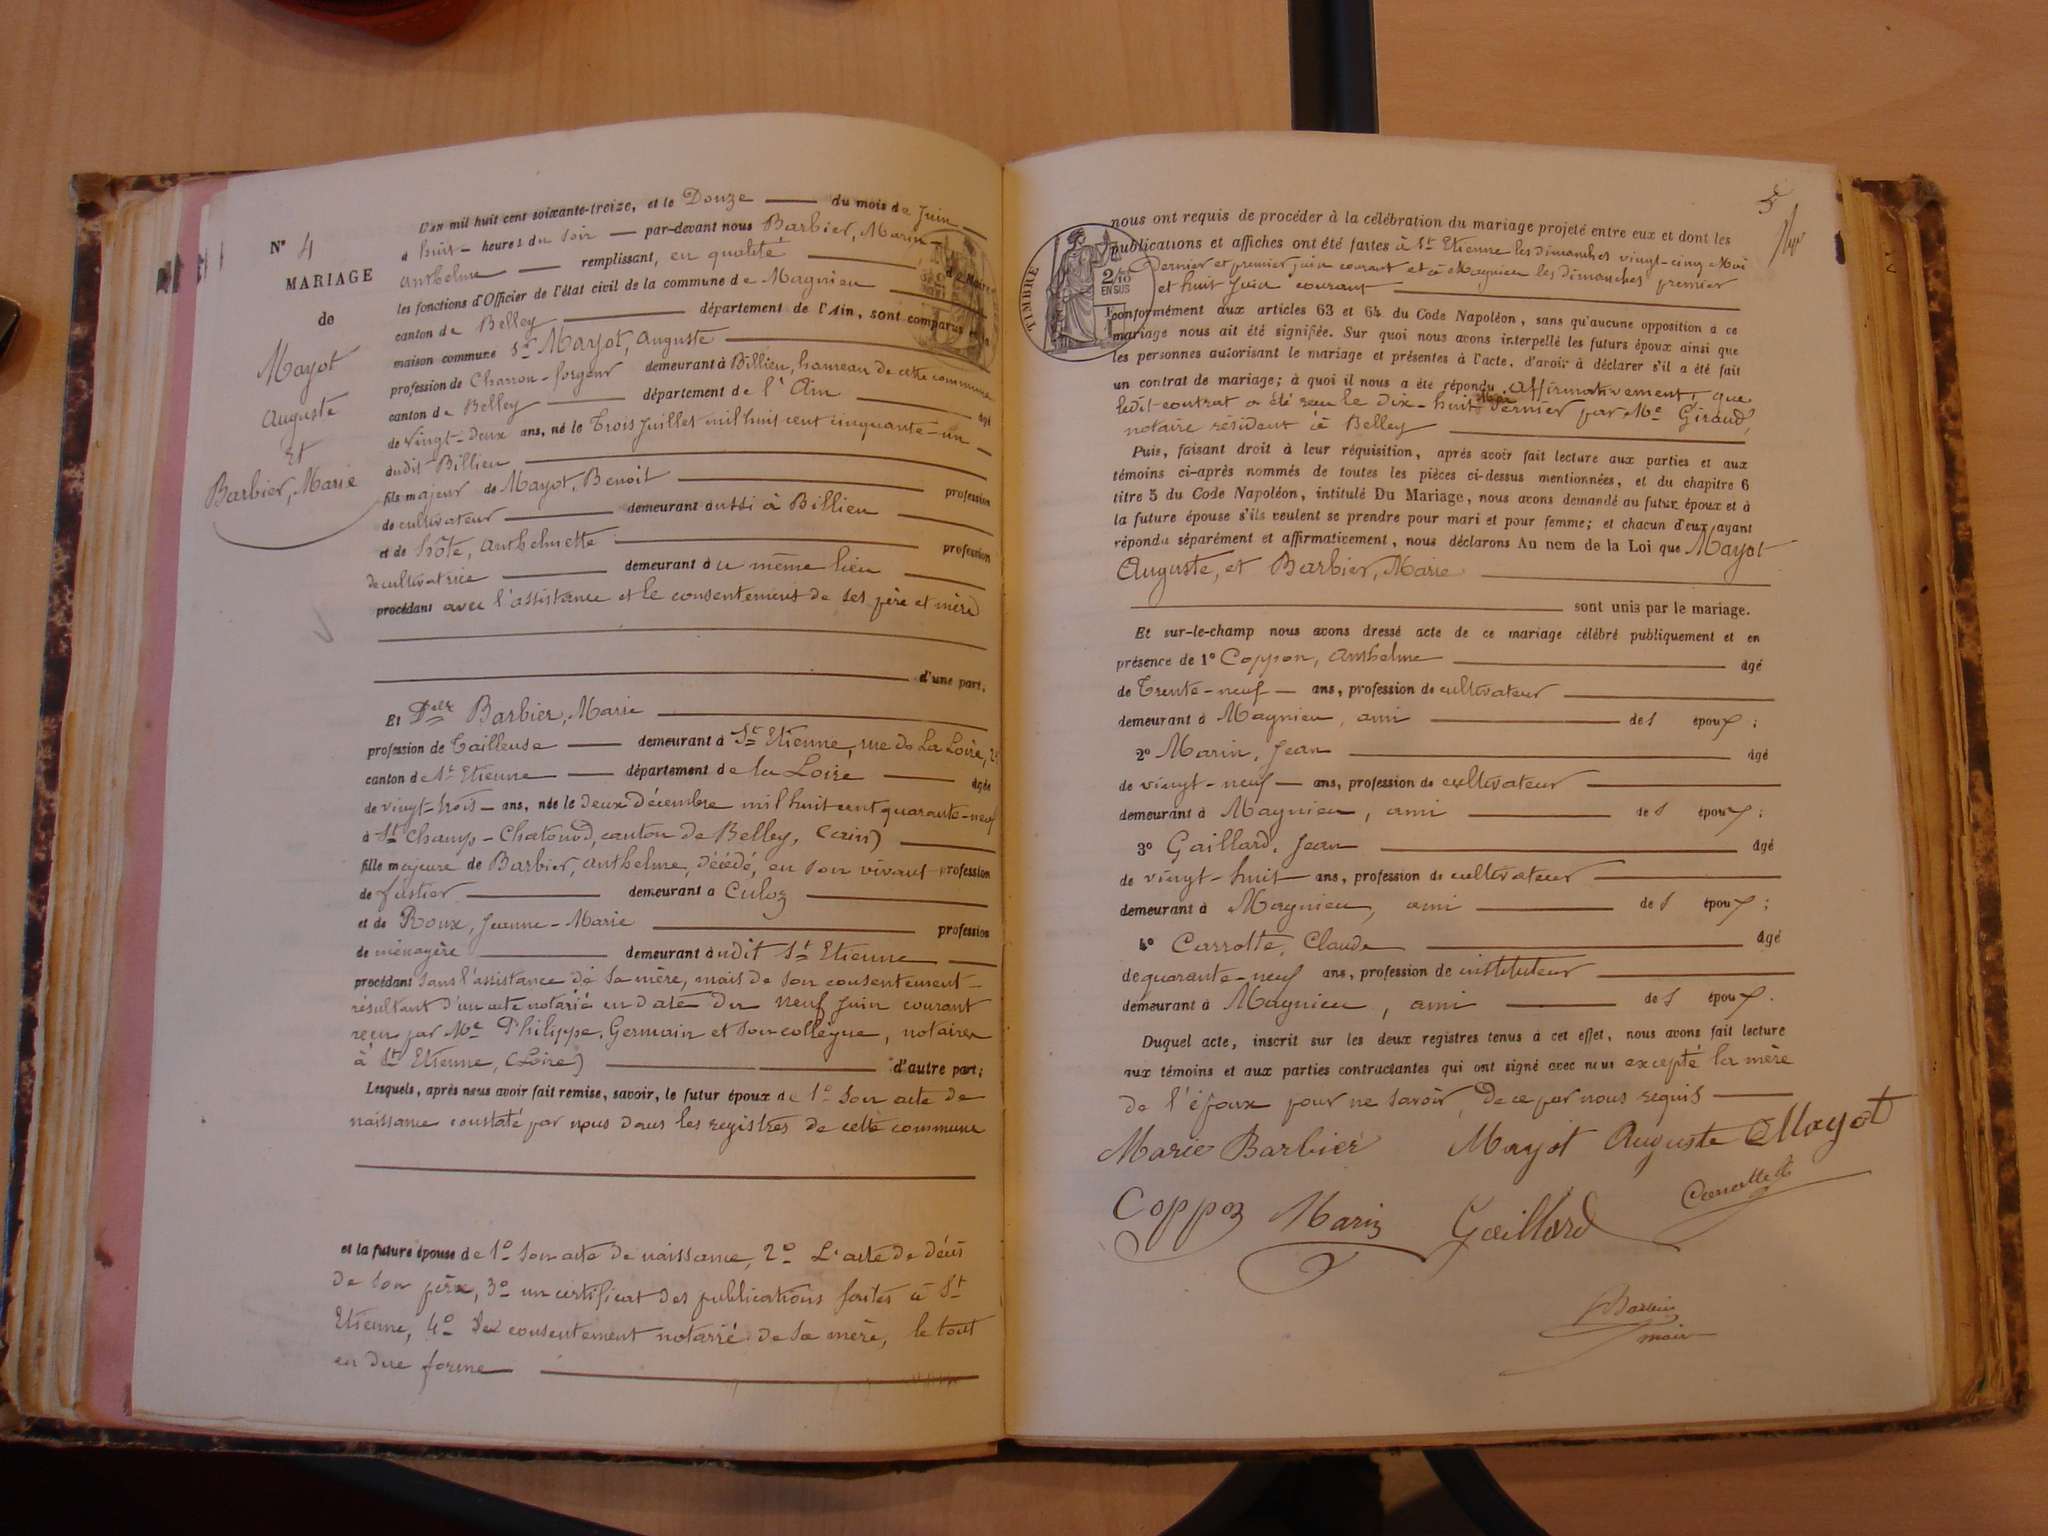 N° 4
MARIAGE
de
Mayot
Auguste
et
Barbier, Marie
L'an mil huit cent soixante-treize, et le Douze du mois de Juin
à huit heures du soir par-devant nous Barbier, Marin
Anthelme remplissant, en qualité de Maire
les fonctions d'Officier de l'état civil de la commune de Magnieu
canton de Belley département de l'Ain, sont comparus en la
maison commune Sr Mayot, Auguste
profession de Charron-forgeur demeurant à Billieu, hameau de cette commune
canton de Belley département de l'Ain âgé
de vingt-deux ans, né le Trois Juillet mil huit cent cinquante-un
audit Billieu
fils majeur de Mayot, Benoit profession
de cultivateur demeurant aussi à Billieu
et de Hôte, Anthelmette profession
de cultivatrice demeurant à ce même lieu
procédant avec l'assistance et le consentement de ses père et mère
d'une part;
Et Delle Barbier, Marie
profession de Tailleuse demeurant à St Etienne, rue de La Loire,
canton de St Etienne département de la Loire âgée
de vingt-trois ans, née le deux Décembre mil huit cent quarante-neuf
à St Champ-Chatonod, canton de Belley, (Ain)
fille majeure de Barbier, Anthelme, décédé, en son vivant profession
de fustier demeurant à Culoz
et de Roux, Jeanne-Marie profession
de ménagère demeurant audit St Etienne
procédant sans l'assistance de sa mère, mais de son consentement
résultant d'un acte notarié en date du neuf juin courant
reçu par Me Philippe, Germain et son collègue, notaires
à St Etienne, (Loire) d'autre part;
Lesquels, après nous avoir fait remise, savoir, le futur époux de 1° son acte de
naissance constaté par nous dans les registres de cette commune
et la future épouse de 1° son acte de naissance, 2° L'acte de décès
de son père, 3° un certificat des publications faites à St
Etienne, 4° le consentement notarié de sa mère, le tout
en due forme
5
TIMBRE
2/10 EN SUS
nous ont requis de procéder à la célébration du mariage projeté entre eux et dont les
publications et affiches ont été faites à St Etienne les dimanches vingt-cinq Mai
Dernier et premier juin courant et à Magnieu les dimanches premier
et huit Juin courant
conformément aux articles 63 et 64 du Code Napoléon, sans qu'aucune opposition à ce
mariage nous ait été signifiée. Sur quoi nous avons interpellé les futurs époux ainsi que
les personnes autorisant le mariage et présentes à l'acte, d'avoir à déclarer s'il a été fait
un contrat de mariage; à quoi il nous a été répondu Affirmativement, que
ledit contrat a été reçu le dix-huit Mai Dernier par Me Giraud,
notaire résident à Belley
Puis, faisant droit à leur réquisition, après avoir fait lecture aux parties et aux
témoins ci-après nommés de toutes les pièces ci-dessus mentionnées, et du chapitre 6
titre 5 du Code Napoléon, intitulé Du Mariage, nous avons demandé au futur époux et à
la future épouse s'ils veulent se prendre pour mari et pour femme; et chacun d'eux ayant
répondu séparément et affirmativement, nous déclarons Au nom de la Loi que Mayot
Auguste, et Barbier, Marie
sont unis par le mariage.
Et sur-le-champ nous avons dressé acte de ce mariage célébré publiquement et en
présence de 1° Coppon, Anthelme âgé
de Trente-neuf ans, profession de cultivateur
demeurant à Magnieu, ami des époux;
2° Marin, Jean âgé
de vingt-neuf ans, profession de cultivateur
demeurant à Magnieu, ami des époux;
3° Gaillard, Jean âgé
de vingt-huit ans, profession de cultivateur
demeurant à Magnieu, ami des époux;
4° Carrotte, Claude âgé
de quarante-neuf ans, profession de instituteur
demeurant à Magnieu, ami des époux.
Duquel acte, inscrit sur les deux registres tenus à cet effet, nous avons fait lecture
aux témoins et aux parties contractantes qui ont signé avec nous excepté la mère
de l'époux pour ne savoir, de ce par nous requis
Marie Barbier Mayot Auguste Mayot
Coppoz Marin Gaillard Carrotte
Barbier
maire